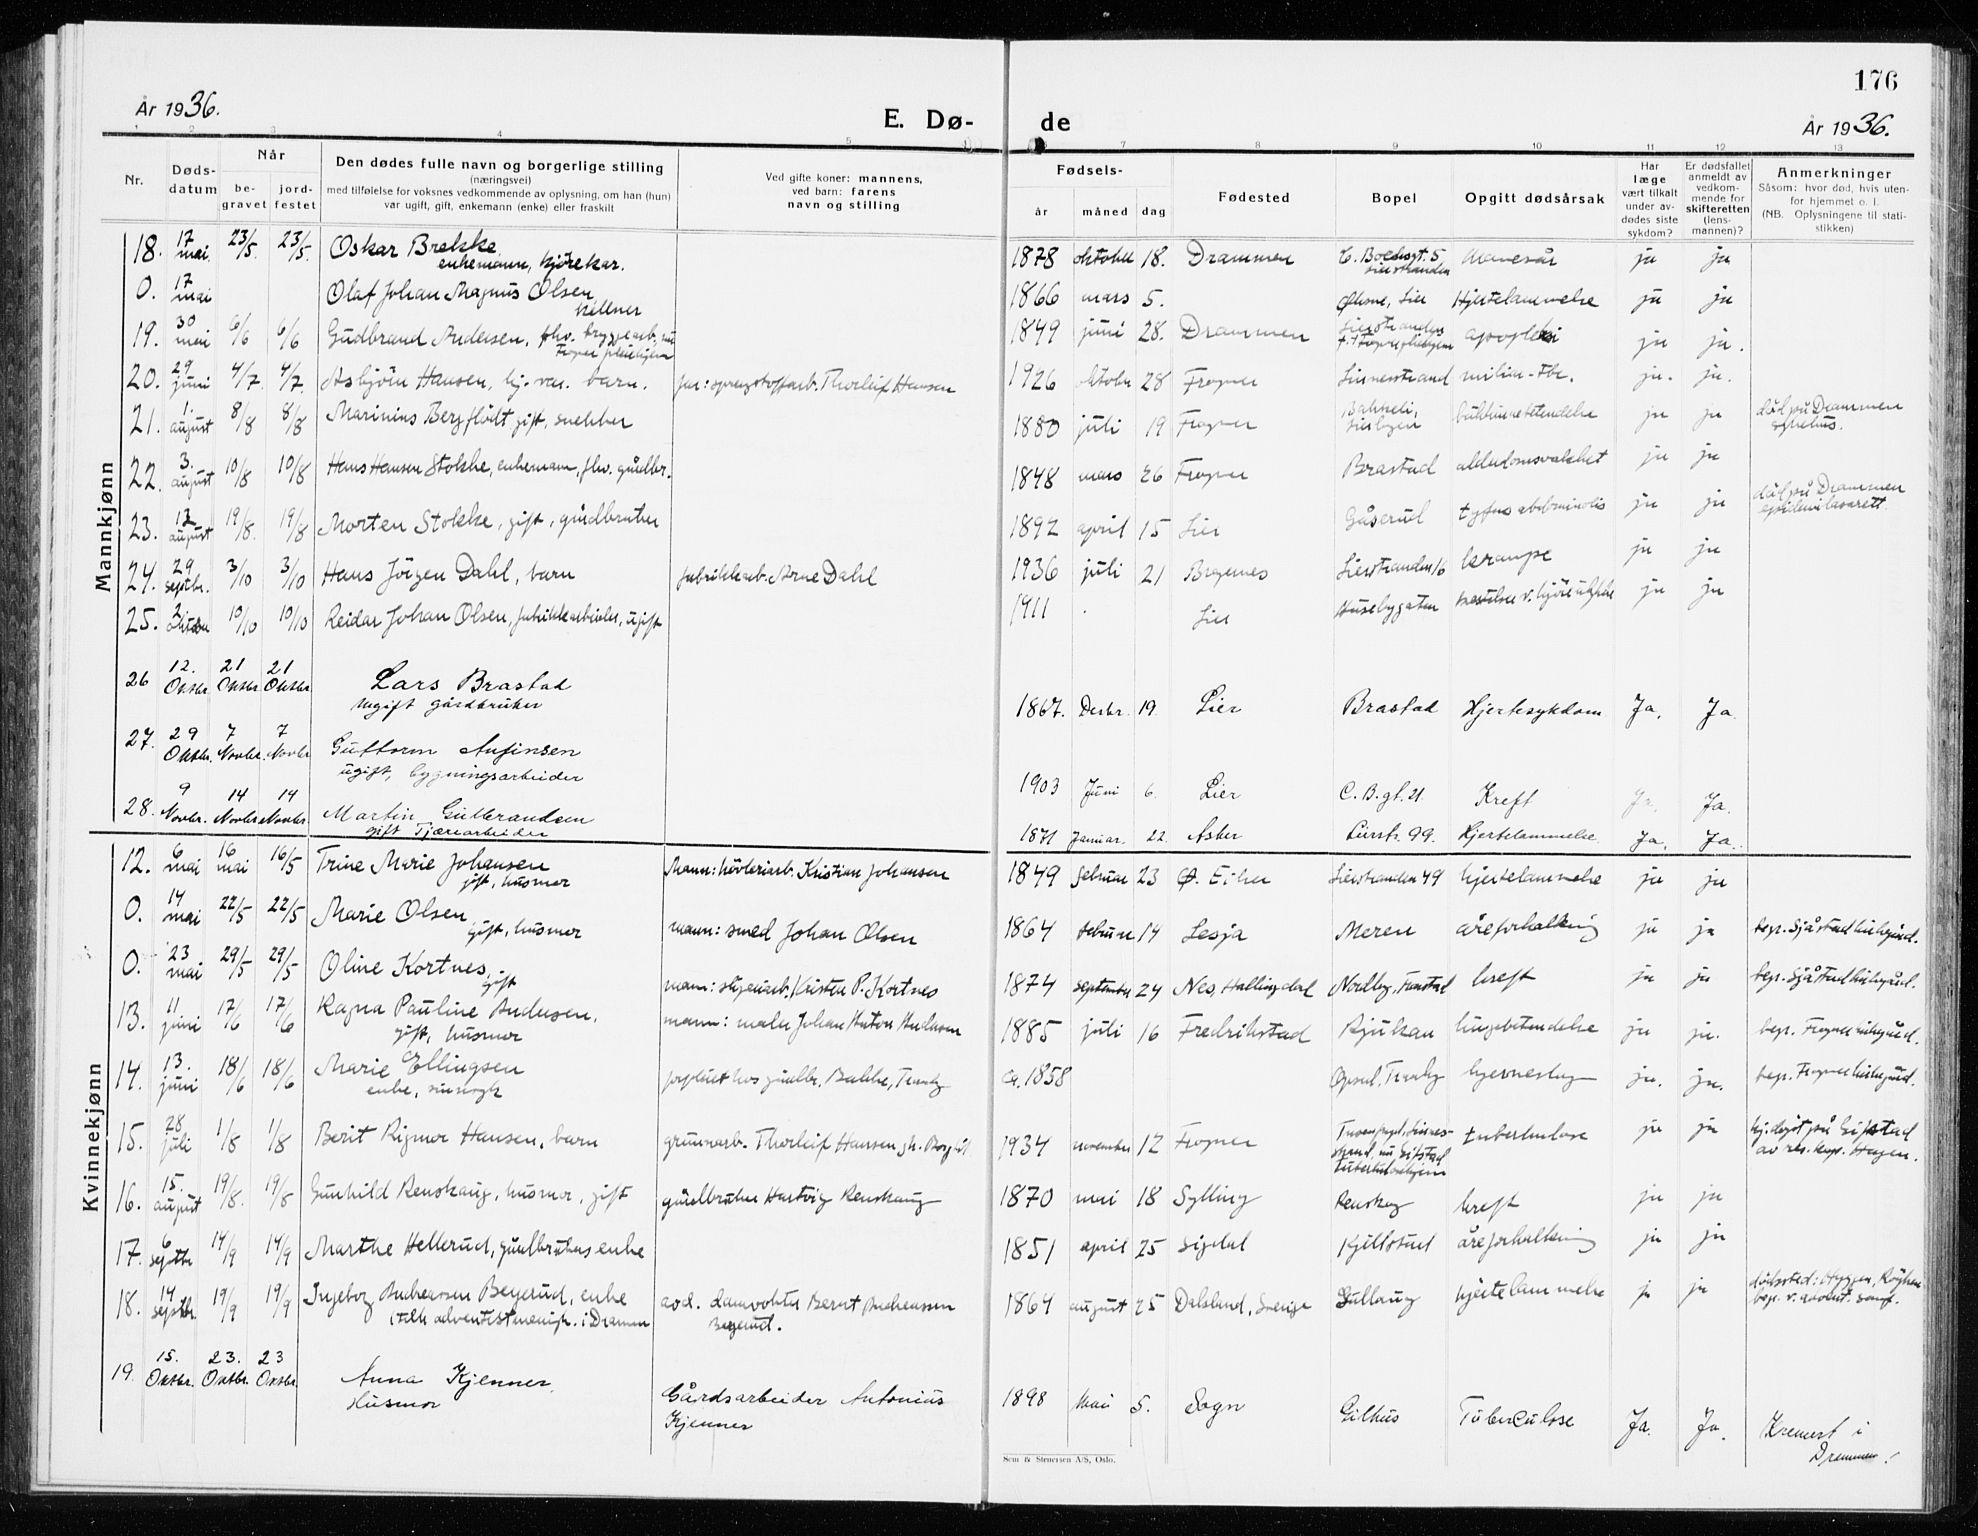 176
År 1936.
E. Dø-
de
År 1936.
1 2 3 4 5
6 7 8 9 10 11 12 13
Nr.
Døds-
datum
Når
be-
gravet
jord-
festet
Den dødes fulle navn og borgerlige stilling
(næringsvei)
med tilføielse for voksnes vedkommende av oplysning, om han (hun)
var ugift, gift, enkemann (enke) eller fraskilt
Ved gifte koner: mannens,
ved barn: farens
navn og stilling
Fødsels-
år måned dag
Fødested
Bopel
Opgitt dødsårsak
Har
læge
vært tilkalt
under av-
dødes siste
sykdom?
Er dødsfallet
anmeldt av
vedkom-
mende for
skifteretten
(lens-
mannen)?
Anmerkninger
Såsom: hvor død, hvis uten-
for hjemmet o. l.
(NB. Oplysningene til stati-
stikken)
Mannkjønn
18. 17 mai 23/5. 23/5. Oskar Brekke
enkemann, kjørekar. 1878 oktober 18. Drammen Lierstranden ja ja
0. 17 mai Olaf Johan Magnus Olsen
kellner 1866 mars 5. Lier Hjertelammelse ja ja
19. 30 mai 6/6 6/6 Gudbrand Andersen, fhv. bryggearb., nu
Frogner pleiehjem 1849 juni 28. Drammen Lierstranden apopleksi ja ja.
20. 29 juni 4/7. 4/7. Asbjörn Hansen, hj. vær. barn. far: sprengstoffarb. Thorleif Hansen 1926 oktober 28 Frogner Linnesstrand miliær-Tbc. ja. ja.
21. 1. august 8/8 8/8 Marinius Bergflödt gift, snekker 1880 juli 19 Frogner Bakkeli,
Lierbyen bukhinnebetendelse ja ja död på Drammen
sykehus.
22. 3. august 10/8 10/8 Hans Hansen Stokke, enkemann, fhv. gårdbr. 1848 mars 26 Frogner Brastad alderdomssvakhet ja ja
23. 12 august 19/8. 19/8 Morten Stokke, gift, gårdbruker 1892 april 15 Lier Gåserud tyfus abdominalis ja ja död på Drammen
epidemilasarett.
24. 29 septbr. 3/10 3/10 Hans Jörgen Dahl, barn fabrikkarb. Arne Dahl 1936 juli 21 Bragernes Lierstranden 16 krampe ja ja
25. 2. oktober 10/10 10/10 Reidar Johan Olsen, fabrikkarbeider, ugift 1911 Lier Husebygaten v. kjöreulykke ja ja
26 12. Oktbr. 21 Oktbr. 21 Oktbr. Lars Brastad
ugift gårdbruker 1867. Desbr. 19. Lier Brastad Hjertesykdom Ja. Ja.
27. 29 Oktbr. 7 Novbr. 7 Novbr. Guttorm Anfinsen
ugift, bygningsarbeider 1903 Juni 6. Lier C. B. gt. 21. Kreft Ja. Ja.
28. 9 Novbr. 14 Novbr. 14 Novbr. Martin Gulbrandsen
gift Tjærearbeider 1871 Januar. 22. Asker Lierstr. 99. Hjertelammelse. Ja. Ja.
Kvinnekjønn
12. 6 mai 16 mai 16/5 Trine Marie Johansen
gift, husmor Mann: hövleriarb. Kristian Johansen 1849 februar 23 Ø. Eiker Lierstranden 49 hjertelammelse ja ja
0. 14 mai 22/5 22/5 Marie Olsen
gift, husmor mann: smed Johan Olsen 1864 februar 14 Lesja Meren åreforkalkning ja ja begr. Sjåstad kirkegård.
0. 23 mai 29/5 29/5 Oline Kortnes,
gift mann: Kristen P. Kortnes 1874 september 24 Nes, Hallingdal Nordby, kreft ja ja begr. Sjåstad kirkegård.
13. 11 juni 17/6 17/6 Ragna Pauline Andersen,
gift, husmor mann: maler Johan Anton Andersen 1885 juli 16 Fredrikstad Rjukan lungebetendelse ja ja. begr. Frogner kirkegård.
14. 13. juni 18/6 18/6 Marie Ellingsen
enke, forpleiet hos gårdbr. Bakke, Tranby ca. 1858 Opsal, Tranby hjerneslag ja. ja. begr. Frogner kirkegård.
15. 28 juli 1/8 1/8 Berit Rigmor Hansen, barn gruvearb. Thorleif Hansen 1934 november 12 Frogner tuberkulose ja ja hj. döpt på Sifstad
av res. kap. Hagen.
16. 15. august 19/8. 19/8 Gunhild Renskaug, husmor, gift gårdbruker Hartvig Renskaug 1870 mai 18 Sylling Renskog kreft ja ja
17. 6 septbr 14/9 14/9 Marthe Hellerud, gårdbrukers enke 1851 april 25 Sigdal Kjellstad åreforkalkning ja ja
18. 14 septbr. 19/9 19/9 Ingeborg Andreassen Begerud, enke
(tilh. adventistmenigh. i Drammen avd. damvokter Bernt Andreassen
Begerud. 1864 august 25 Dalsland, Sverige Gullaug hjertelammelse ja ja dödssted: Hyggen, Röyken
begr. v. advent. samf.
19. 15. Oktbr. 23. Oktbr. 23 Oktbr. Anna Kjenner.
Husmor Gårdsarbeider Antonius
Kjenner 1898 Mai 5. Sogn Gilhus Tüberculose Ja. Ja. Kremert i
Drammen!
Sem & Stenersen A/S, Oslo.